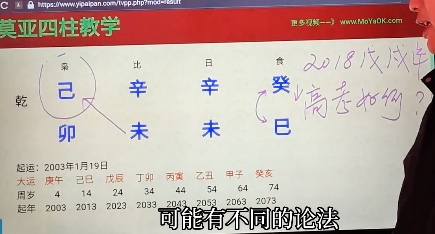 https://www.yipaipan.com/tvpp.php?mod=result
莫亚四柱教学
更多视频——》 www.MoYaOK.com
枭 比 日 食
乾 己 辛 辛 癸
卯 未 未 巳
2018戊戌年
高考如何?
起运:2003年1月19日
大运 庚午 己巳 戊辰 丁卯 丙寅 乙丑 甲子 癸亥
周岁 4 14 24 34 44 54 64 74
起年 2003 2013 2023 2033 2043 2053 2063 2073
可能有不同的论法